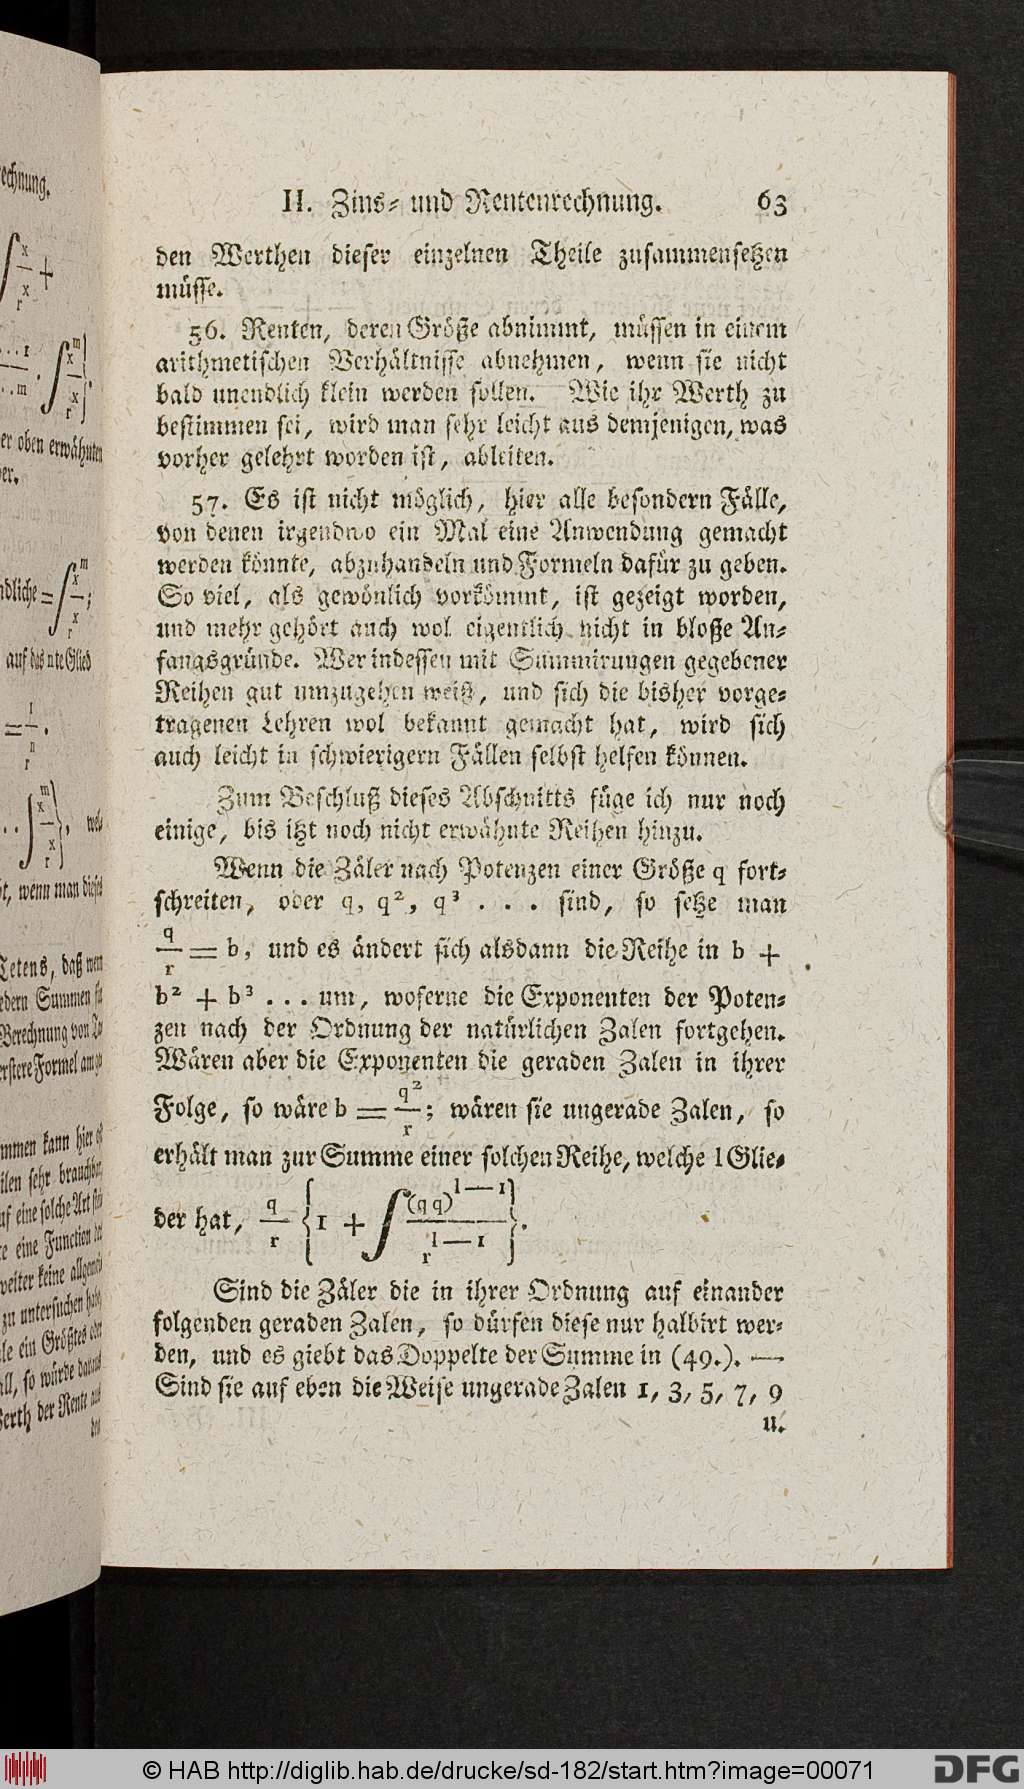 II. Zins- und Rentenrechnung. 63
den Werthen dieser einzelnen Theile zusammensetzen
müsse.
56. Renten, deren Größe abnimmt, müssen in einem
arithmetischen Verhältnisse abnehmen, wenn sie nicht
bald unendlich klein werden sollen. Wie ihr Werth zu
bestimmen sei, wird man sehr leicht aus demjenigen, was
vorher gelehrt worden ist, ableiten.
57. Es ist nicht möglich, hier alle besondern Fälle,
von denen irgendwo ein Mal eine Anwendung gemacht
werden könnte, abzuhandeln und Formeln dafür zu geben.
So viel, als gewönlich vorkömmt, ist gezeigt worden,
und mehr gehört auch wol eigentlich nicht in bloße An-
fangsgründe. Wer indessen mit Summirungen gegebener
Reihen gut umzugehen weiß, und sich die bisher vorge-
tragenen Lehren wol bekannt gemacht hat, wird sich
auch leicht in schwierigern Fällen selbst helfen können.
Zum Beschluß dieses Abschnitts füge ich nur noch
einige, bis itzt noch nicht erwähnte Reihen hinzu.
Wenn die Zäler nach Potenzen einer Größe q fort-
schreiten, oder q, q², q³ . . . sind, so setze man
q/r = b, und es ändert sich alsdann die Reihe in b +
b² + b³ . . . um, woferne die Exponenten der Poten-
zen nach der Ordnung der natürlichen Zalen fortgehen.
Wären aber die Exponenten die geraden Zalen in ihrer
Folge, so wäre b = q²/r; wären sie ungerade Zalen, so
erhält man zur Summe einer solchen Reihe, welche l Glie-
der hat, q/r {1 + ∫ (qq)^(l—1) / r^(l—1)}.
Sind die Zäler die in ihrer Ordnung auf einander
folgenden geraden Zalen, so dürfen diese nur halbirt wer-
den, und es giebt das Doppelte der Summe in (49.). —
Sind sie auf eben die Weise ungerade Zalen 1, 3, 5, 7, 9
u.
© HAB http://diglib.hab.de/drucke/sd-182/start.htm?image=00071
DFG